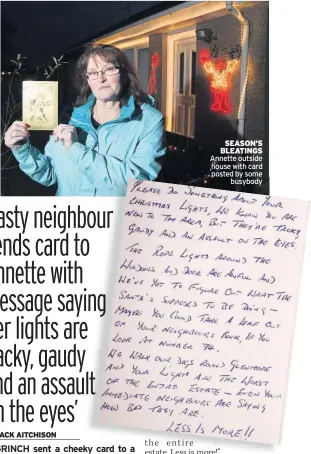 SEASON'S
BLEATINGS
Annette outside
house with card
posted by some
busybody
asty neighbour
ends card to
nnette with
essage saying
er lights are
acky, gaudy
nd an assault
n the eyes'
ACK AITCHISON
GRINCH sent a cheeky card to a
PLEASE DO SOMETHING ABOUT YOUR
CHRISTMAS LIGHTS, WE KNOW YOU ARE
NEW TO THE AREA, BUT THEY'RE TACKY
GAUDY AND AN ASSAULT ON THE EYES.
THE ROPE LIGHTS AROUND THE
WINDOWS AND DOOR ARE AWFUL AND
WE'VE YET TO FIGURE OUT WHAT THE
SANTA'S SUPPOSED TO BE DOING -
MAYBE YOU COULD TAKE A LEAF OUT
OF YOUR NEIGHBOURS BOOK, IF YOU
LOOK AT NUMBER 74.
WE WALK OUR DOGS ROUND GLENMORE
AND YOUR LIGHTS ARE THE WORST
OF THE ENTIRE ESTATE - EVEN YOUR
IMMEDIATE NEIGHBOURS ARE SAYING
HOW BAD THEY ARE.
LESS IS MORE!!
the entire
estate. Less is more!"